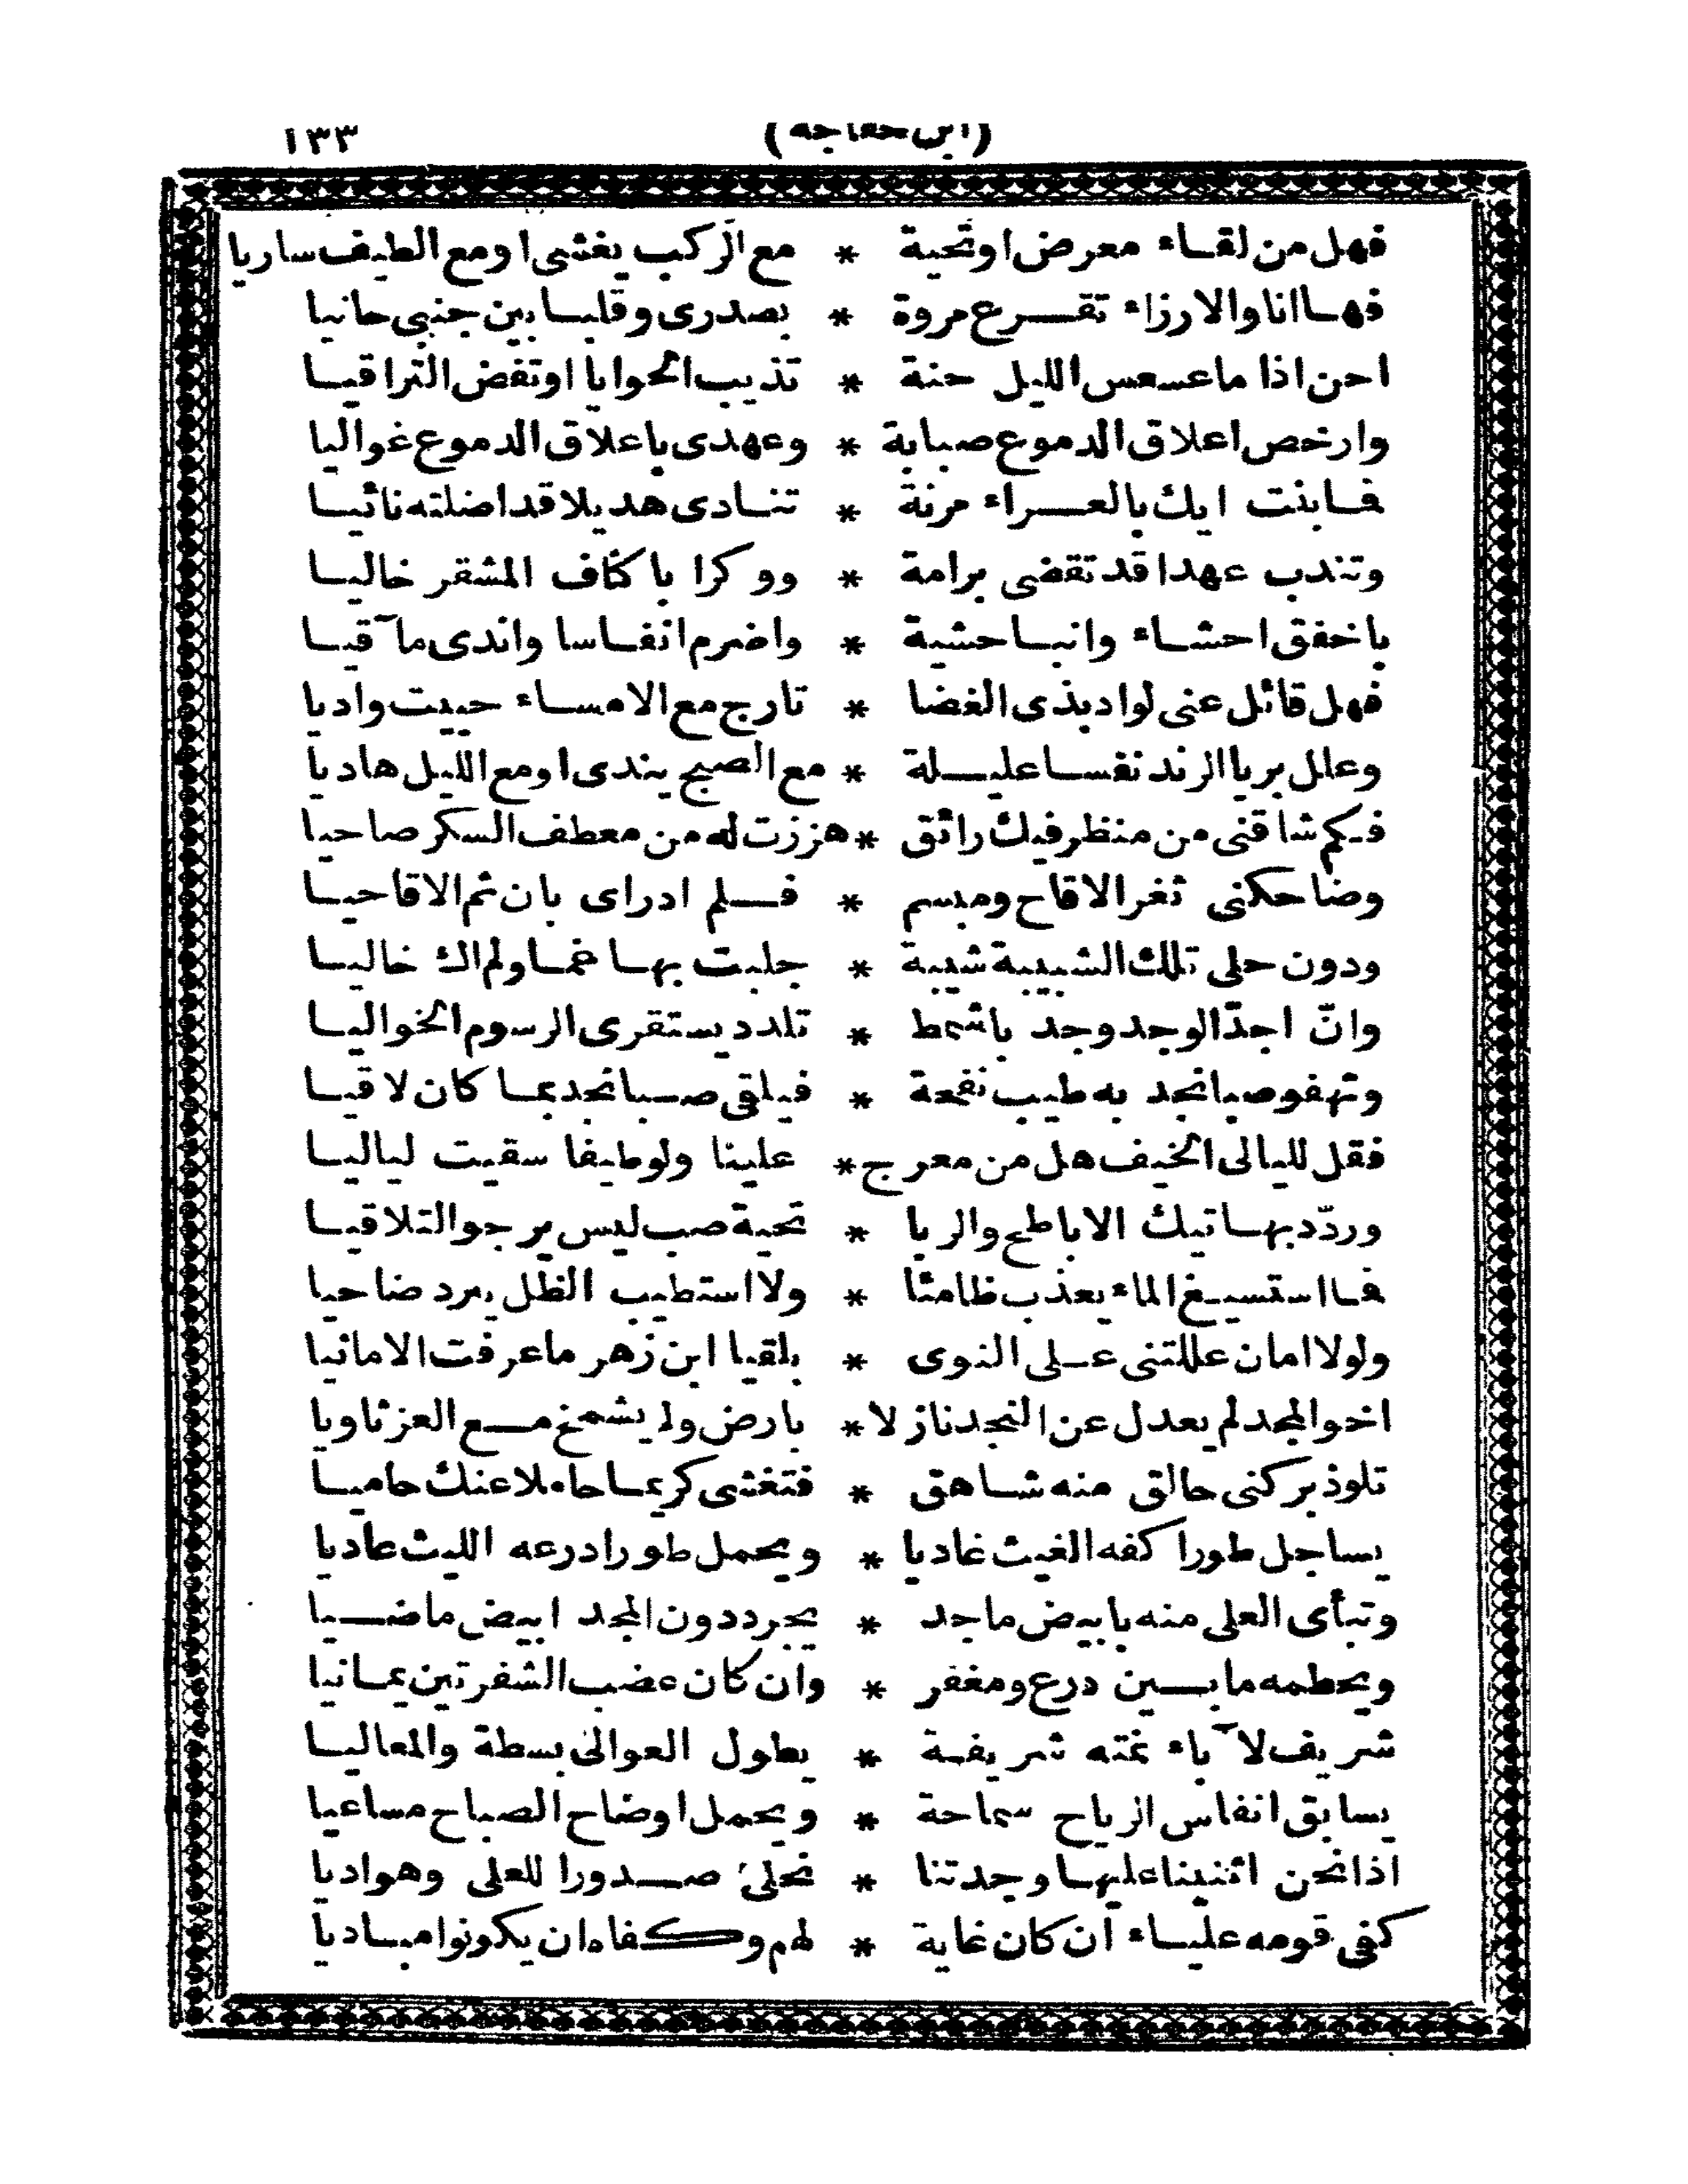 (ابن خفاجه) ١٣٣
فهل من لقاء معرض او تحية * مع الركب يغشى او مع الطيف ساريا
فها انا والارزاء تقرع مروة * بصدرى وقلبا بين جنبى حانيا
احن اذا ما عسعس الليل حنة * تذيب الحوايا او تفض التراقيا
وارخص اعلاق الدموع صبابة * وعهدى باعلاق الدموع غواليا
فما بنت ايك بالعراء مرنة * تنادى هديلا قد اضلته نائيا
وتندب عهدا قد تقضى برامة * ووكرا باكناف المشقر خاليا
باخفق احشاء وانبا حشية * واضرم انفاسا واندى مآقيا
فهل قائل عنى لواد بذى الغضا * تارج مع الامساء حييت واديا
وعلل بريا الرند نفسا عليلة * مع الصبح يندى او مع الليل هاديا
فكم شاقنى من منظر فيك رائق * هززت له من معطف السكر صاحيا
وضاحكنى ثغر الاقاح ومبسم * فلم ادر اى بان ثم الاقاحيا
ودون حلى تلك الشبيبة شيبة * جلبت بها غما ولم اك خاليا
وانّ اجدّ الوجد وجد باشمط * تلدد يستقرى الرسوم الخواليا
وتهفو صبا نجد به طيب نفحة * فيلقى صبا نجد بما كان لاقيا
فقل لليالى الخيف هل من معرج * علينا ولو طيفا سقيت لياليا
وردّد بهاتيك الاباطح والربا * تحية صب ليس يرجو التلاقيا
فما استسيغ الماء يعذب ظامئا * ولا استطيب الظل يبرد ضاحيا
ولولا امان عللتنى على النوى * بلقيا ابن زهر ما عرفت الامانيا
اخو المجد لم يعدل عن النجد نازلا * بارض ولم يشمخ مع العز ثاويا
تلوذ بركنى حالق منه شاهق * فتغشى كريما حاملا عنك حاميا
يساجل طورا كفه الغيث غاديا * ويحمل طورا درعه الليث عاديا
وتبأى العلى منه بابيض ماجد * يجرد دون المجد ابيض ماضيا
ويحطمه ما بين درع ومغفر * وان كان عضب الشفرتين يمانيا
شريف لآباء نمته شريفة * يطول العوالى بسطة والمعاليا
يسابق انفاس الرياح سماحة * ويحمل اوضاح الصباح مساعيا
اذا نحن اثنينا عليها وجدتنا * نحلى صدورا للعلى وهواديا
كفى قومه علياء ان كان غاية * لهم وكفاه ان يكونوا مباديا